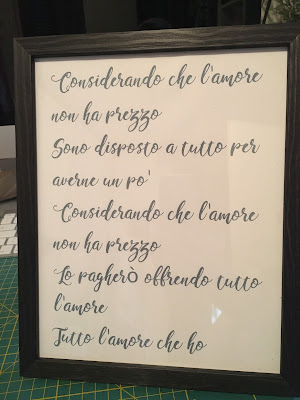 Considerando che l'amore
non ha prezzo
Sono disposto a tutto per
averne un po'
Considerando che l'amore
non ha prezzo
Lo pagherò offrendo tutto
l'amore
Tutto l'amore che ho